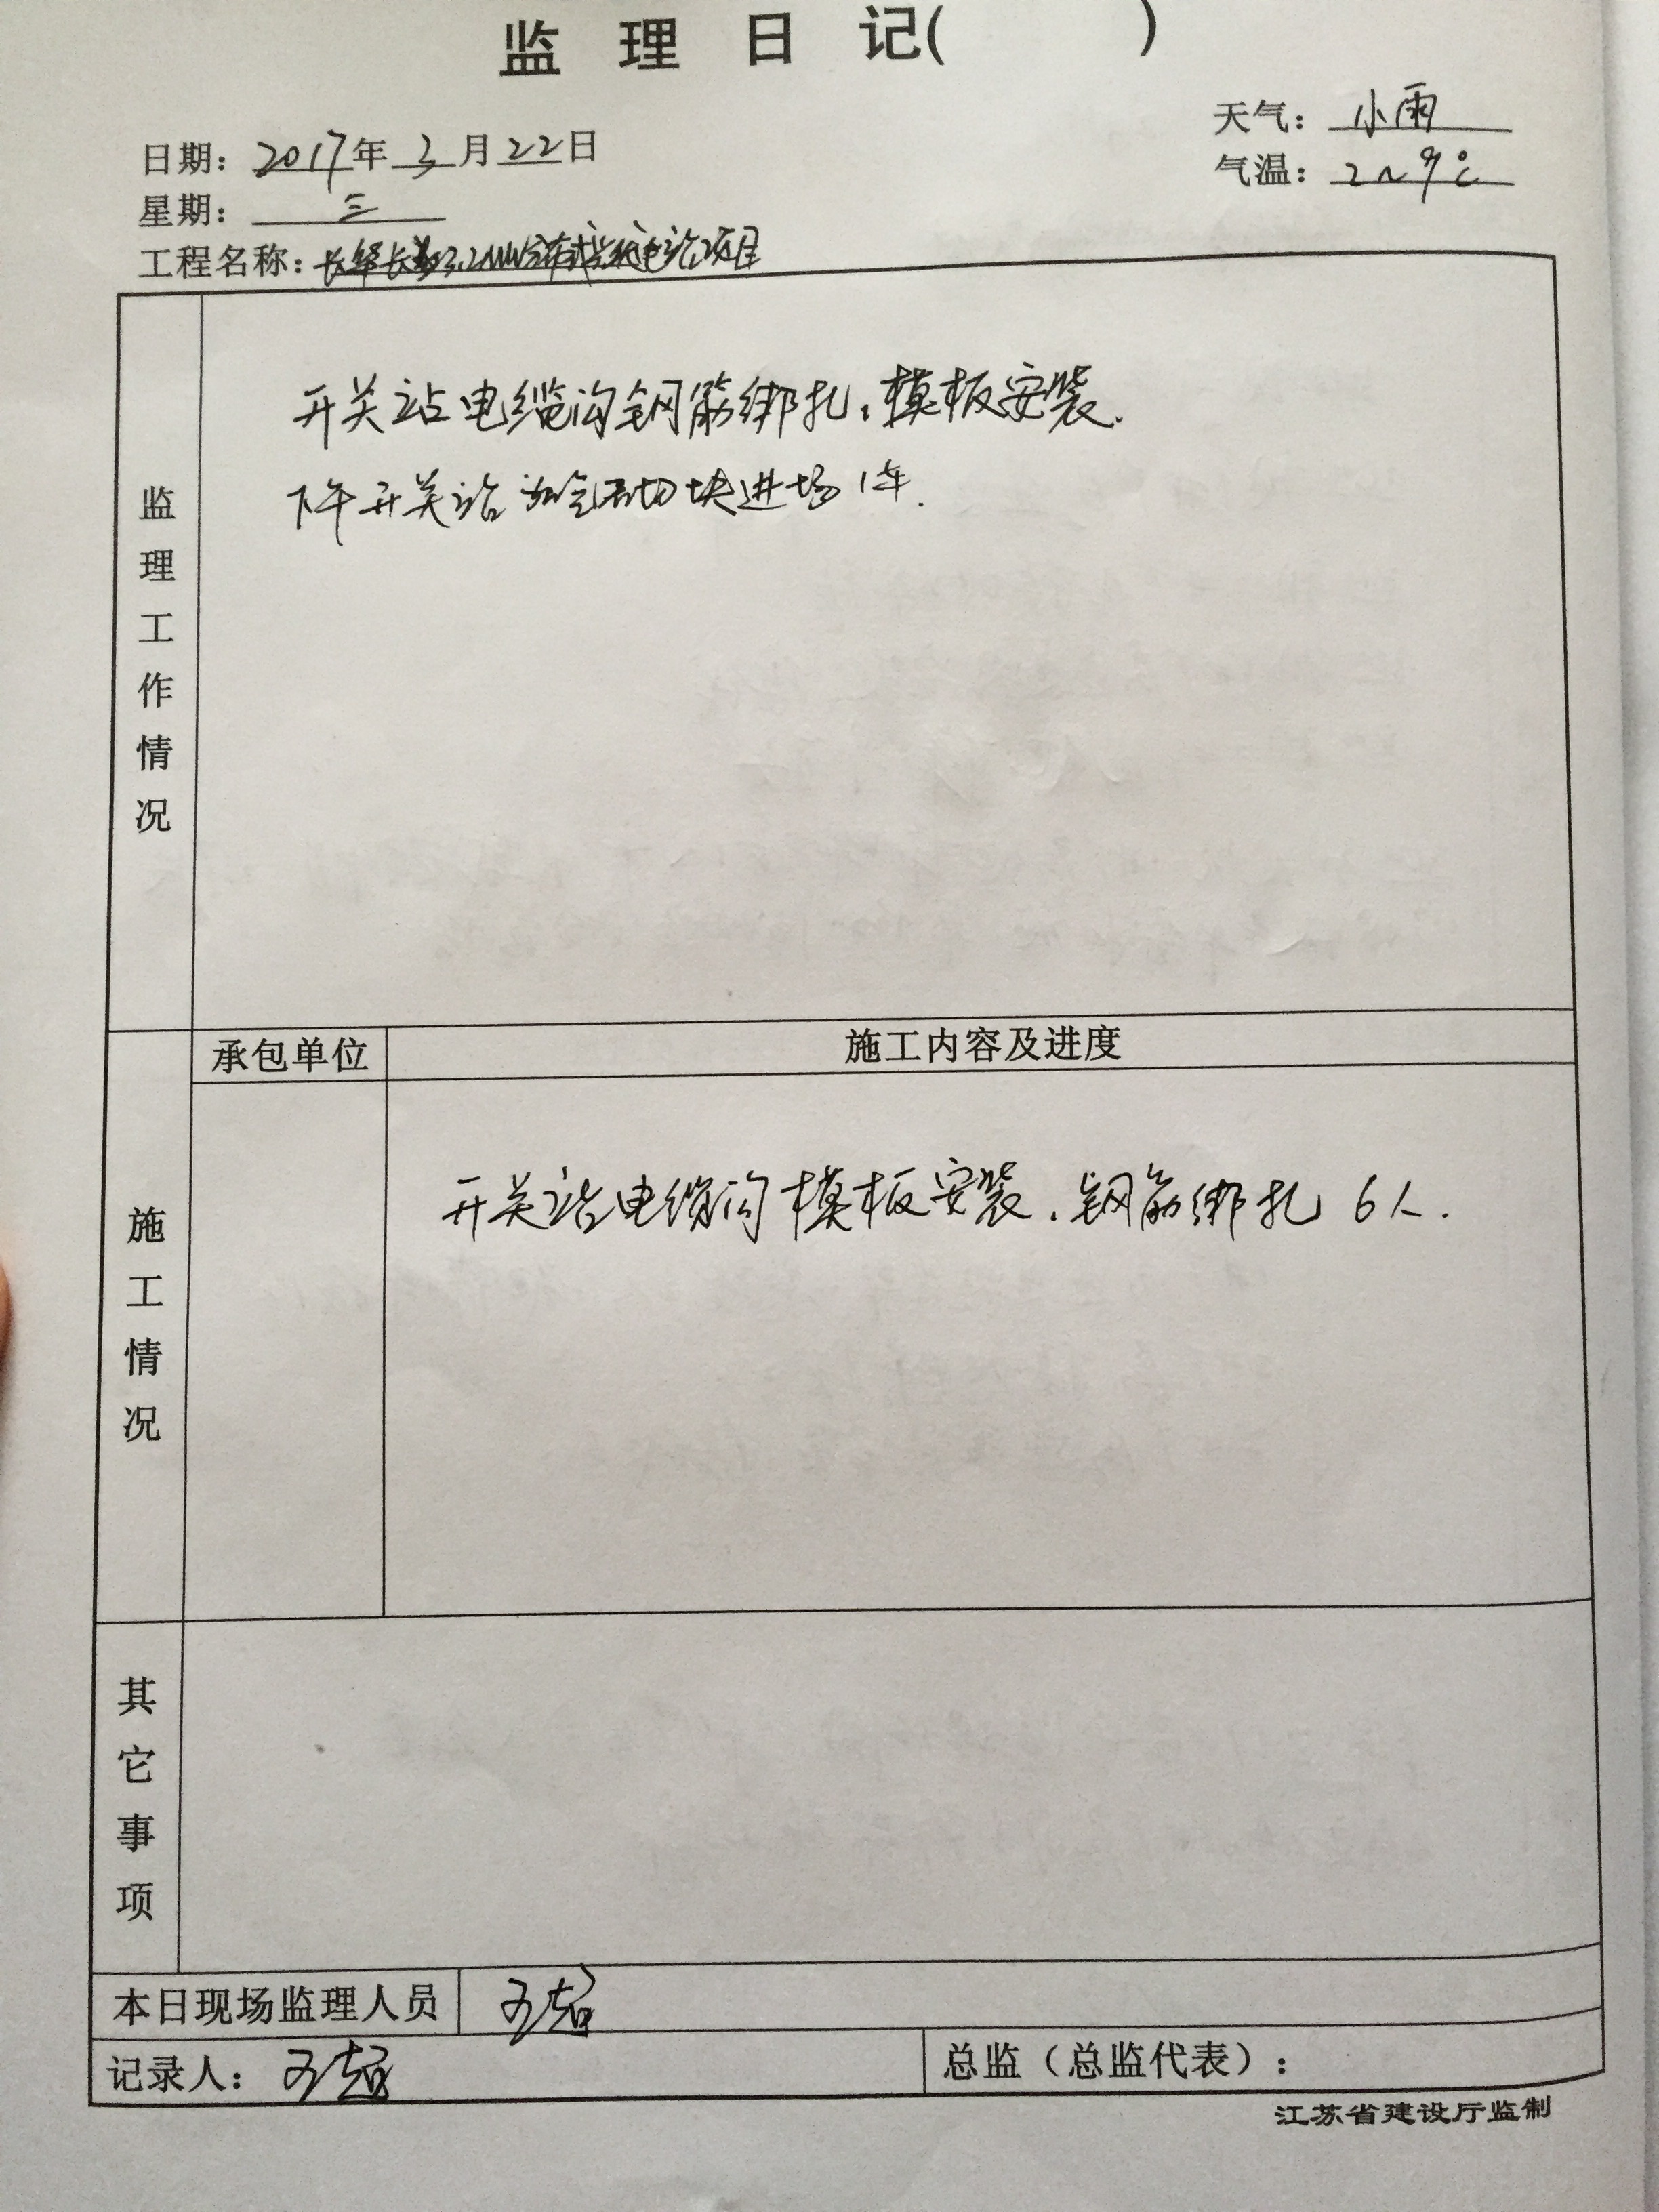 监理日记( )
天气：小雨
日期：2017年3月22日
气温：2~9℃
星期：三
工程名称：长华长 3.2MW分布式光伏电站项目
监理工作情况
开关站电缆沟钢筋绑扎，模板安装.
下午开关站加气砌块进场1车.
承包单位
施工内容及进度
施工情况
开关站电缆沟模板安装，钢筋绑扎 6人.
其它事项
本日现场监理人员
记录人：
总监（总监代表）：
江苏省建设厅监制